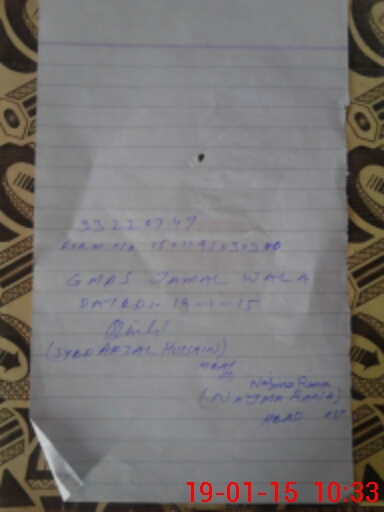 33220747
FORM NO 1501191030300
GMPS JAMAL WALA
DATED:- 19-1-15
(SYED AFZAL HUSSAIN)
Najma Rana
(NAJMA RANA)
HEAD
19-01-15 10:33